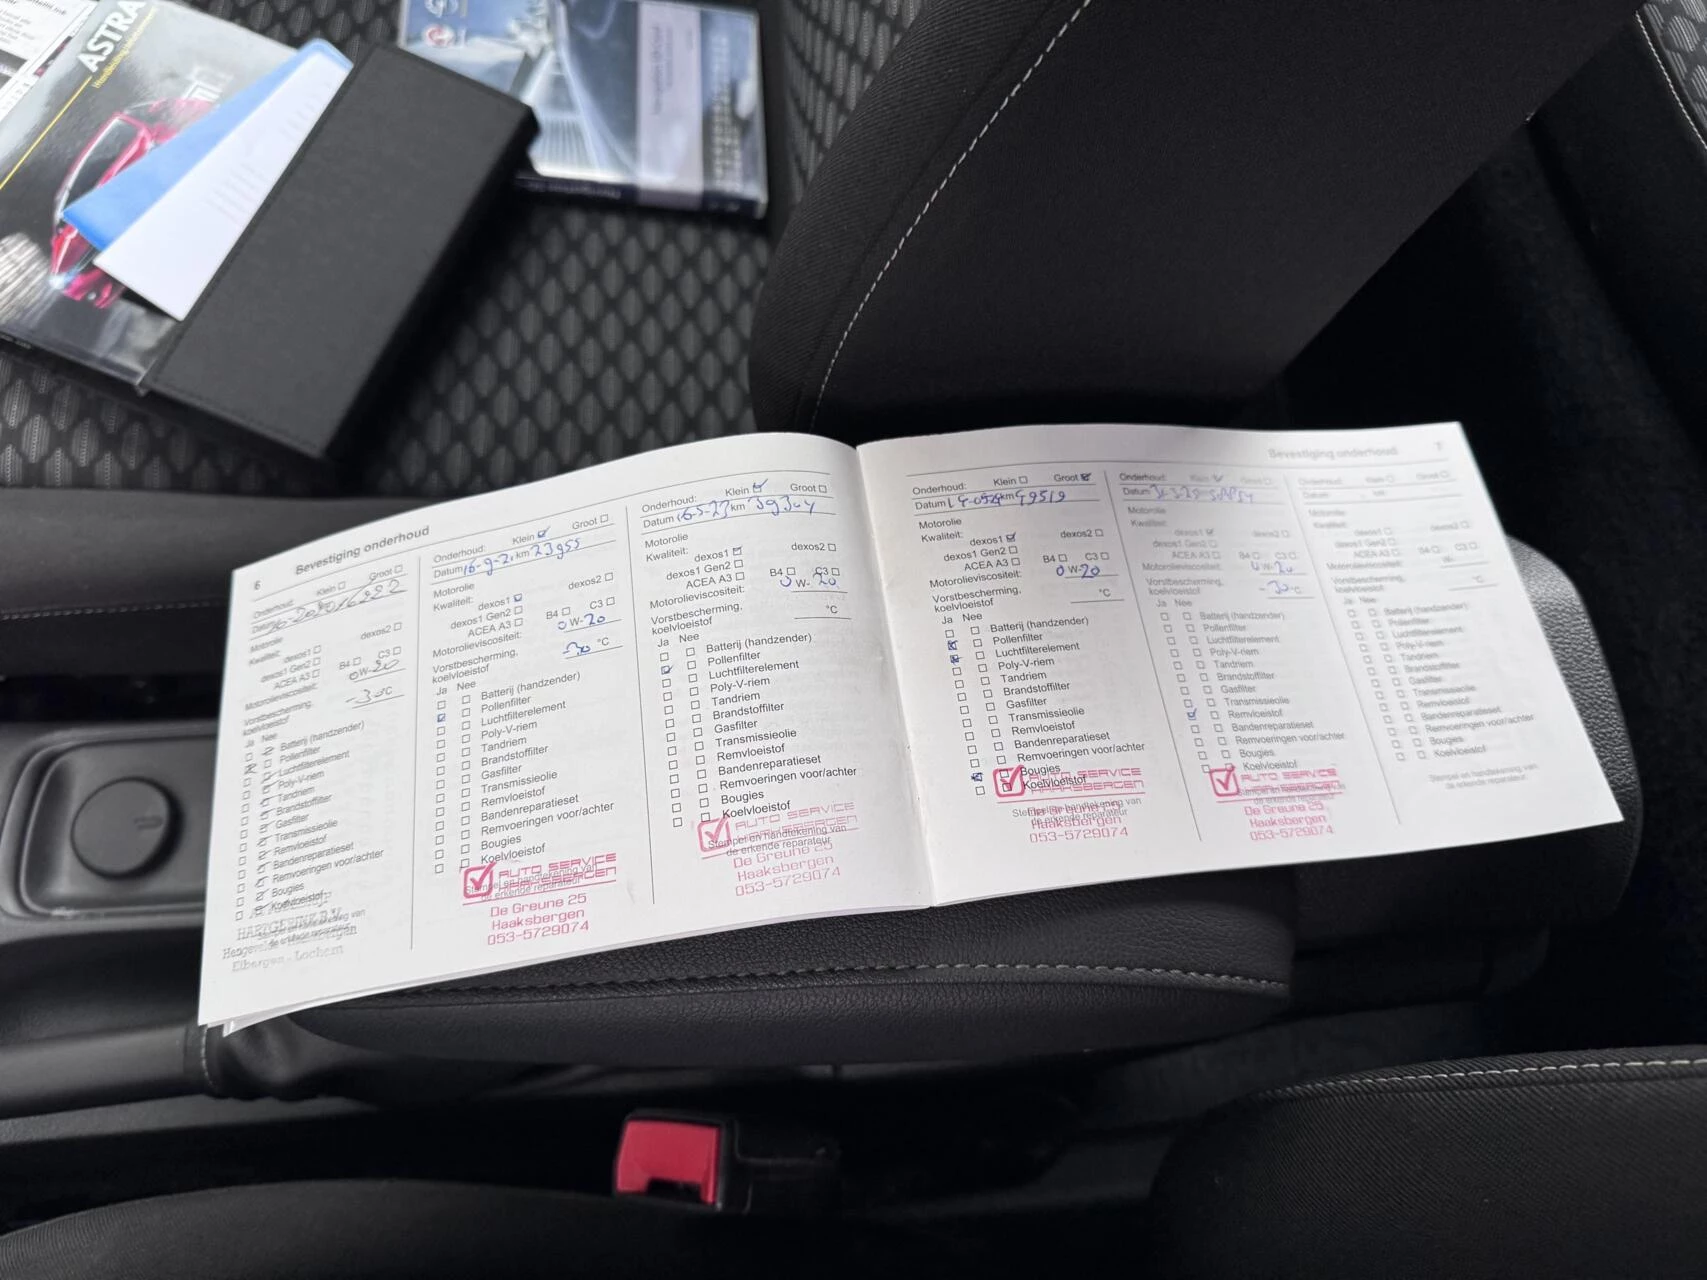 ASTRA
6
Bevestiging onderhoud
Onderhoud: Klein ☐ Groot ☐
Datum
Motorolie
Kwaliteit: dexos1 ☐ dexos2 ☐
dexos1 Gen2 ☐
ACEA A3 ☐ B4 ☐ C3 ☐
Motorolieviscositeit: 0 W-20
Vorstbescherming, koelvloeistof -30 °C
Ja Nee
Batterij (handzender)
Pollenfilter
Luchtfilterelement
Poly-V-riem
Tandriem
Brandstoffilter
Gasfilter
Transmissieolie
Remvloeistof
Bandenreparatieset
Remvoeringen voor/achter
Bougies
Koelvloeistof
Eibergen - Lochem
Onderhoud: Klein ☑ Groot ☐
Datum 16-9-21 km 23955
Motorolie
Kwaliteit: dexos1 ☑ dexos2 ☐
dexos1 Gen2 ☐
ACEA A3 ☐ B4 ☐ C3 ☐
Motorolieviscositeit: 0 W-20
Vorstbescherming,
koelvloeistof -30 °C
Ja Nee
Batterij (handzender)
Pollenfilter
Luchtfilterelement
Poly-V-riem
Tandriem
Brandstoffilter
Gasfilter
Transmissieolie
Remvloeistof
Bandenreparatieset
Remvoeringen voor/achter
Bougies
Koelvloeistof
AUTO SERVICE
HAAKSBERGEN
Stempel en handtekening van
de erkende reparateur
De Greune 25
Haaksbergen
053-5729074
Onderhoud: Klein ☑ Groot ☐
Datum 16-5-23 km 39304
Motorolie
Kwaliteit: dexos1 ☑ dexos2 ☐
dexos1 Gen2 ☐
ACEA A3 ☐ B4 ☐ C3 ☐
Motorolieviscositeit: 0 W-20
Vorstbescherming,
koelvloeistof °C
Ja Nee
Batterij (handzender)
Pollenfilter
Luchtfilterelement
Poly-V-riem
Tandriem
Brandstoffilter
Gasfilter
Transmissieolie
Remvloeistof
Bandenreparatieset
Remvoeringen voor/achter
Bougies
Koelvloeistof
AUTO SERVICE
HAAKSBERGEN
Stempel en handtekening van
de erkende reparateur
De Greune 25
Haaksbergen
053-5729074
Bevestiging onderhoud
7
Onderhoud: Klein ☐ Groot ☑
Datum km 49519
Motorolie
Kwaliteit: dexos1 ☑ dexos2 ☐
dexos1 Gen2 ☐
ACEA A3 ☐ B4 ☐ C3 ☐
Motorolieviscositeit: 0 W-20
Vorstbescherming,
koelvloeistof °C
Ja Nee
Batterij (handzender)
Pollenfilter
Luchtfilterelement
Poly-V-riem
Tandriem
Brandstoffilter
Gasfilter
Transmissieolie
Remvloeistof
Bandenreparatieset
Remvoeringen voor/achter
Bougies
Koelvloeistof
AUTO SERVICE
HAAKSBERGEN
Stempel en handtekening van
de erkende reparateur
De Greune 25
Haaksbergen
053-5729074
Onderhoud: Klein ☑ Groot ☐
Datum
Motorolie
Kwaliteit: dexos1 ☑ dexos2 ☐
dexos1 Gen2 ☐
ACEA A3 ☐ B4 ☐ C3 ☐
Motorolieviscositeit: 0 W-20
Vorstbescherming,
koelvloeistof -30 °C
Ja Nee
Batterij (handzender)
Pollenfilter
Luchtfilterelement
Poly-V-riem
Tandriem
Brandstoffilter
Gasfilter
Transmissieolie
Remvloeistof
Bandenreparatieset
Remvoeringen voor/achter
Bougies
Koelvloeistof
AUTO SERVICE
HAAKSBERGEN
Stempel en handtekening van
de erkende reparateur
De Greune 25
Haaksbergen
053-5729074
Onderhoud: Klein ☐ Groot ☐
Datum km
Motorolie
Kwaliteit: dexos1 ☐ dexos2 ☐
dexos1 Gen2 ☐
ACEA A3 ☐ B4 ☐ C3 ☐
Motorolieviscositeit: W-
Vorstbescherming,
koelvloeistof °C
Ja Nee
Batterij (handzender)
Pollenfilter
Luchtfilterelement
Poly-V-riem
Tandriem
Brandstoffilter
Gasfilter
Transmissieolie
Remvloeistof
Bandenreparatieset
Remvoeringen voor/achter
Bougies
Koelvloeistof
Stempel en handtekening van
de erkende reparateur